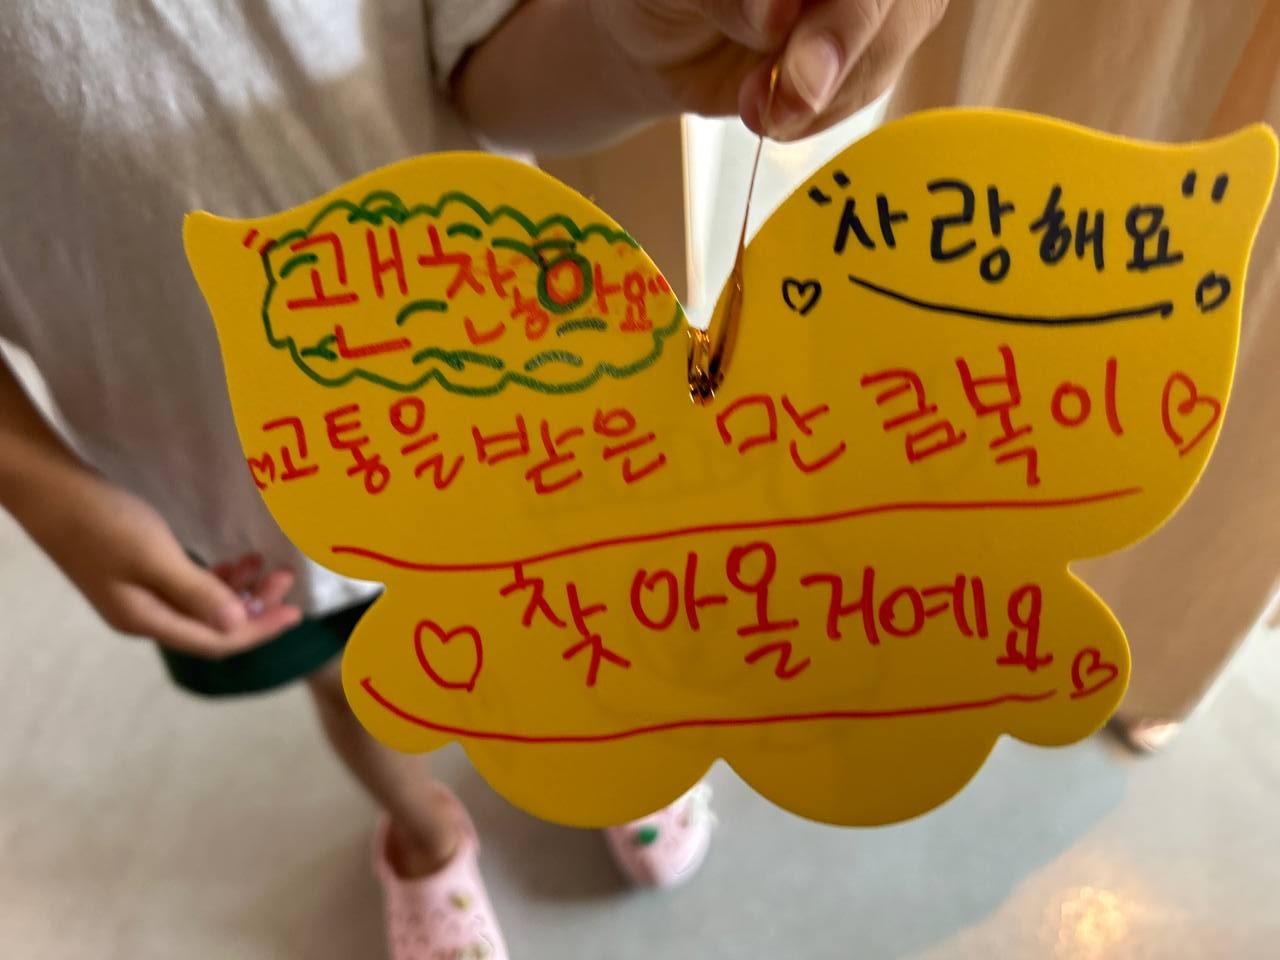 "괜찮아요"
"사랑해요"
고통을 받은 만큼 복이
찾아올거예요